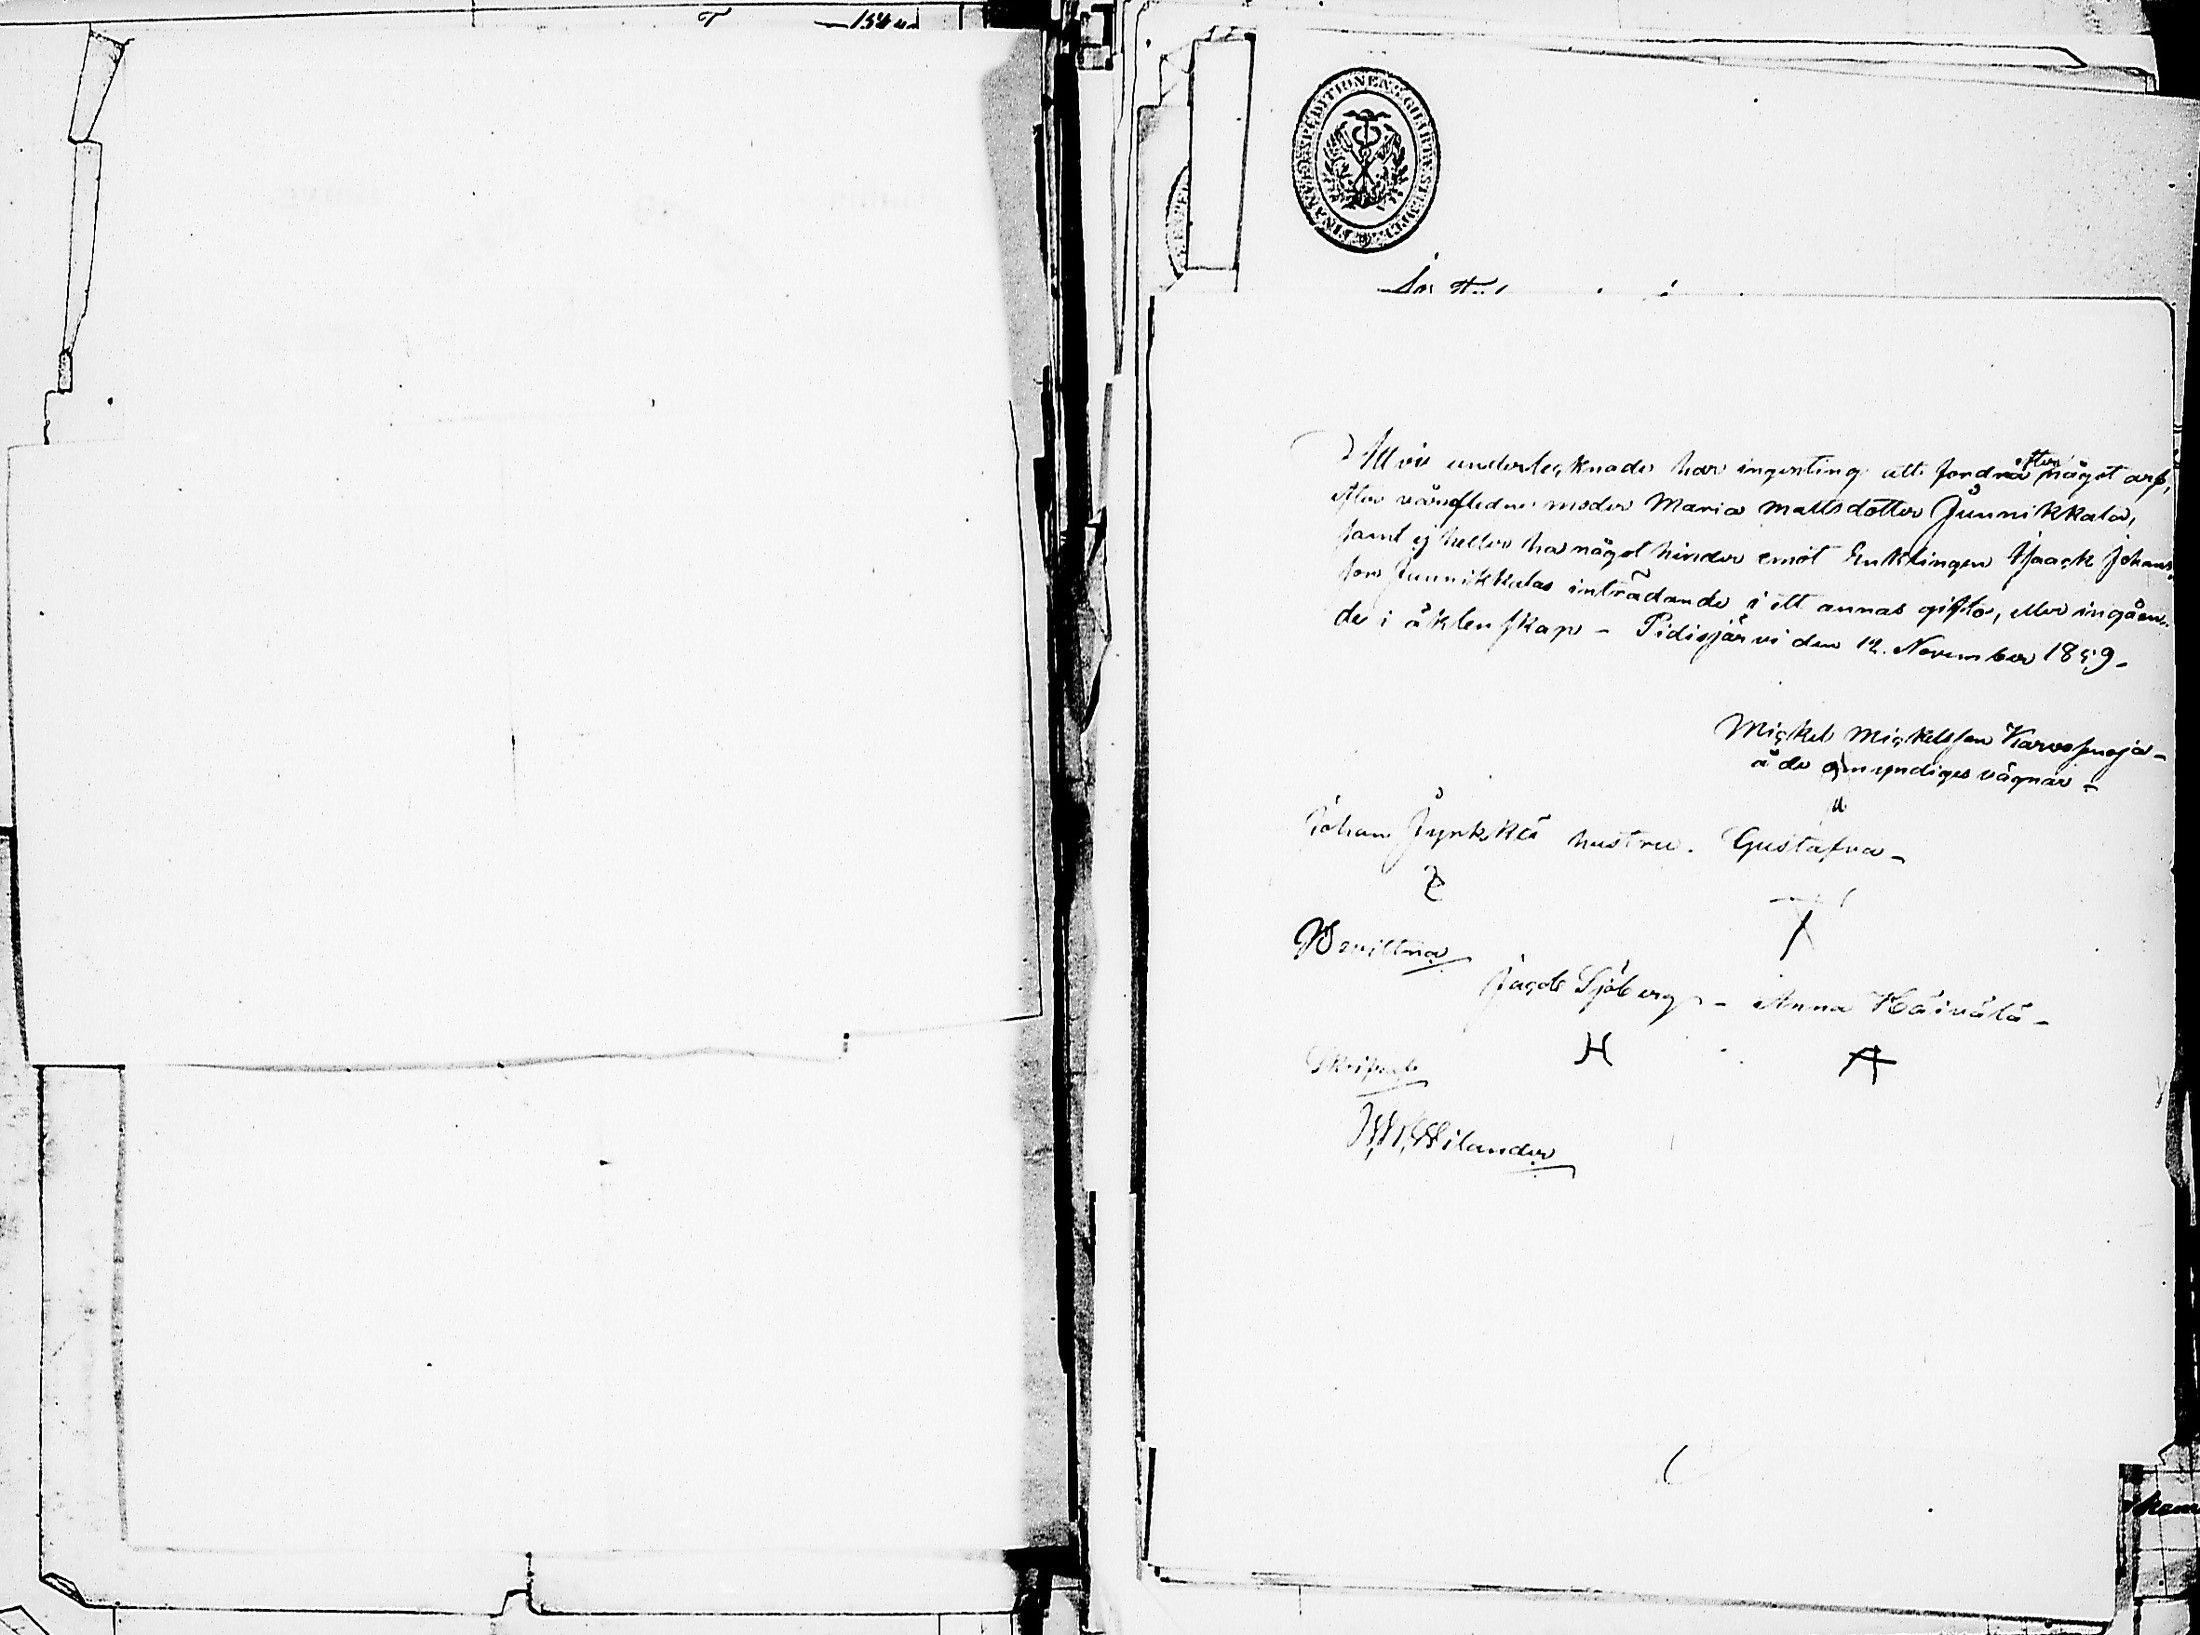 Att vi undertecknade har ingenting att fordra efter något arf,
efter vår afledne moder Maria Mattsdotter Junnikkala,
samt ej heller ha något hinder emot Enklingen Isaack Johans-
son Junnikkalas inträdande i ett annat gifte, eller ingåen-
de i äktenskap - Pidisjärvi den 12. November 1859 -
Mickel Mickelsson Karvosenoja -
å de omyndiges vägnar -
Johan Jyrkkä hustru. Gustafva -
Bevittna
Jacob Sjöberg - Anna Häivälä -
H A
Wilander